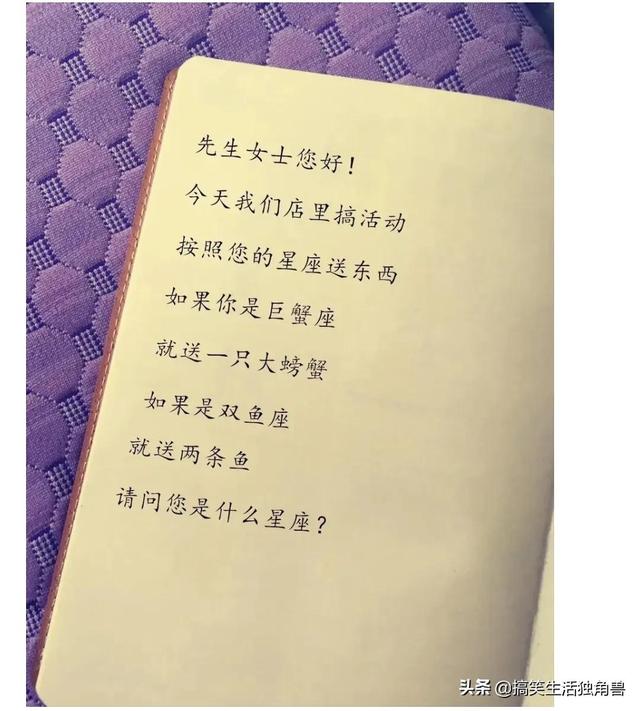 先生女士您好!
今天我们店里搞活动
按照您的星座送东西
如果你是巨蟹座
就送一只大螃蟹
如果是双鱼座
就送两条鱼
请问您是什么星座?
头条 @搞笑生活独角兽